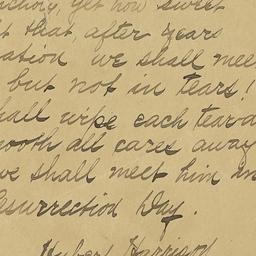 yet how sweet
that, after years
we shall meet
but not in tears!
shall wipe each tear
smooth all cares away
we shall meet him
Resurrection Day.
Hubert Harrison